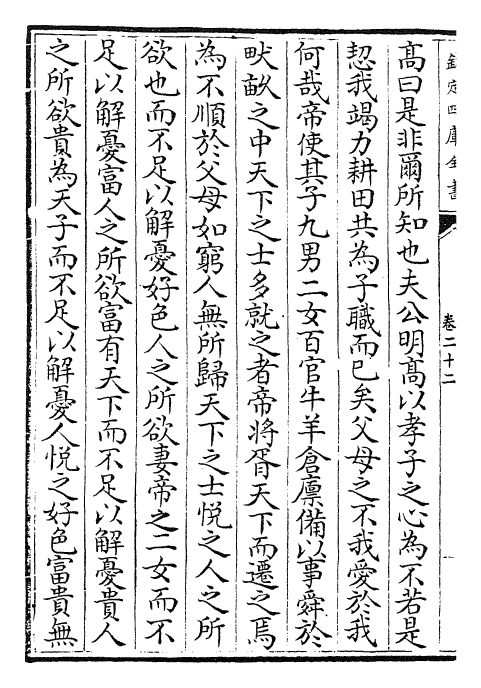 欽定四庫全書
卷二十二
高曰是非爾所知也夫公明高以孝子之心為不若是
恝我竭力耕田共為子職而已矣父母之不我愛於我
何哉帝使其子九男二女百官牛羊倉廩備以事舜於
畎畝之中天下之士多就之者帝將胥天下而遷之焉
為不順於父母如窮人無所歸天下之士悅之人之所
欲也而不足以解憂好色人之所欲妻帝之二女而不
足以解憂富人之所欲富有天下而不足以解憂貴人
之所欲貴為天子而不足以解憂人悅之好色富貴無